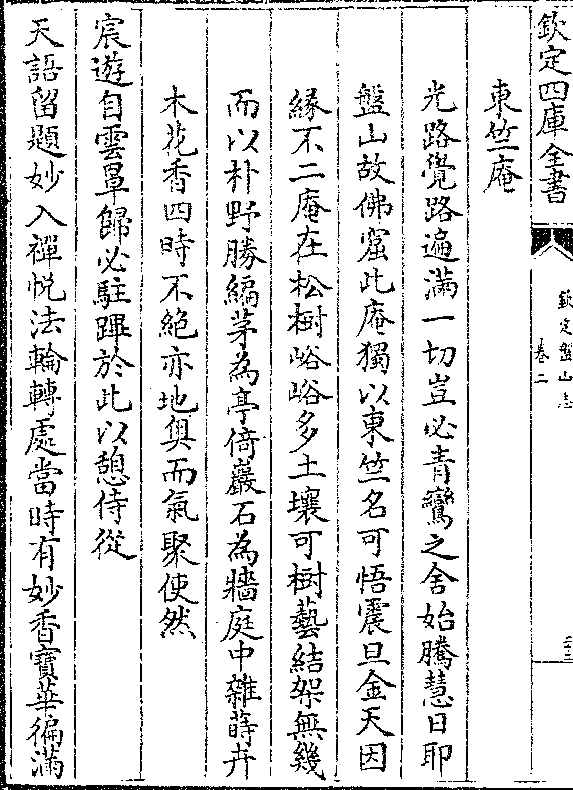 欽定四庫全書
欽定盤山志
卷二
二十三
東竺庵
光路覺路遍滿一切豈必青鸞之舍始騰慧日耶
盤山故佛窟此庵獨以東竺名可悟震旦金天因
縁不二庵在松樹峪峪多土壤可樹藝結架無幾
而以朴野勝編茅為亭倚巖石為牆庭中雜蒔卉
木花香四時不絕亦地奧而氣聚使然
宸遊自雲罩歸必駐蹕於此以憩侍從
天語留題妙入禪悅法輪轉處當時有妙香寶華徧滿